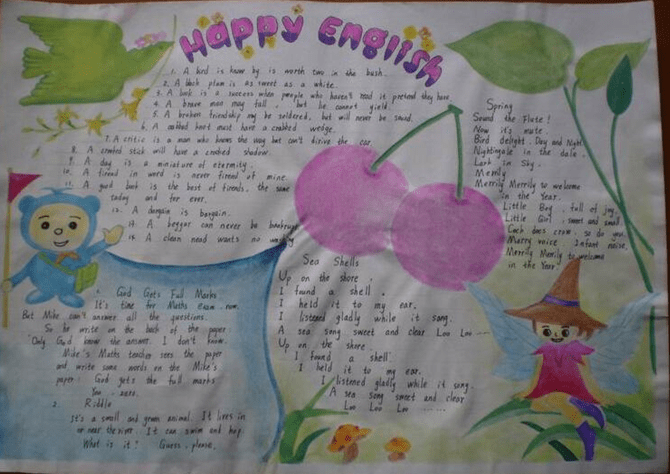 Happy English
1. A bird is know by is worth two in the bush.
2. A black plum is as sweet as a white.
3. A book is a success when people who haven't read it pretend they have.
4. A brave man may fall, but he cannot yield.
5. A broken friendship may be soldered, but will never be sound.
6. A crabbed knot must have a crabbed wedge.
7. A critic is a man who knows the way but can't drive the car.
8. A crooked stick will have a crooked shadow.
9. A day is a miniature of eternity.
10. A friend in word is never friend of mine.
11. A good book is the best of friends, the same
today and for ever.
12. A bargain is bargain.
13. A beggar can never be bankrupt
14. A clean hand wants no
1. God Gets Full Marks
It's time for Maths exam now.
But Mike can't answer all the questions.
So he write on the back of the paper
"Only God know the answer. I don't know.
Mike's Maths teacher sees the paper
and write some words on the Mike's
paper: God gets the full marks
You, zero.
2. Riddle
It's a small and green animal. It lives in
or near the river. It can swim and hop.
What is it? Guess, please.
Sea Shells
Up on the shore,
I found a shell.
I held it to my ear.
I listened gladly while it song.
A sea song sweet and clear Loo Loo ---
Up on the shore.
I found a shell.
I held it to my ear.
I listened gladly while it song.
A sea song sweet and clear
Loo Loo Loo ......
Spring
Sound the Flute!
Now it's mute.
Bird delight. Day and Night
Nightingale in the dale.
Lark in Sky.
Merrily
Merrily Merrily to welcome
in the Year.
Little Boy, full of joy,
Little Girl, sweet and small
Cock does crow, so do you.
Merry voice, Infant noise,
Merrily Merrily to welcome
in the Year.